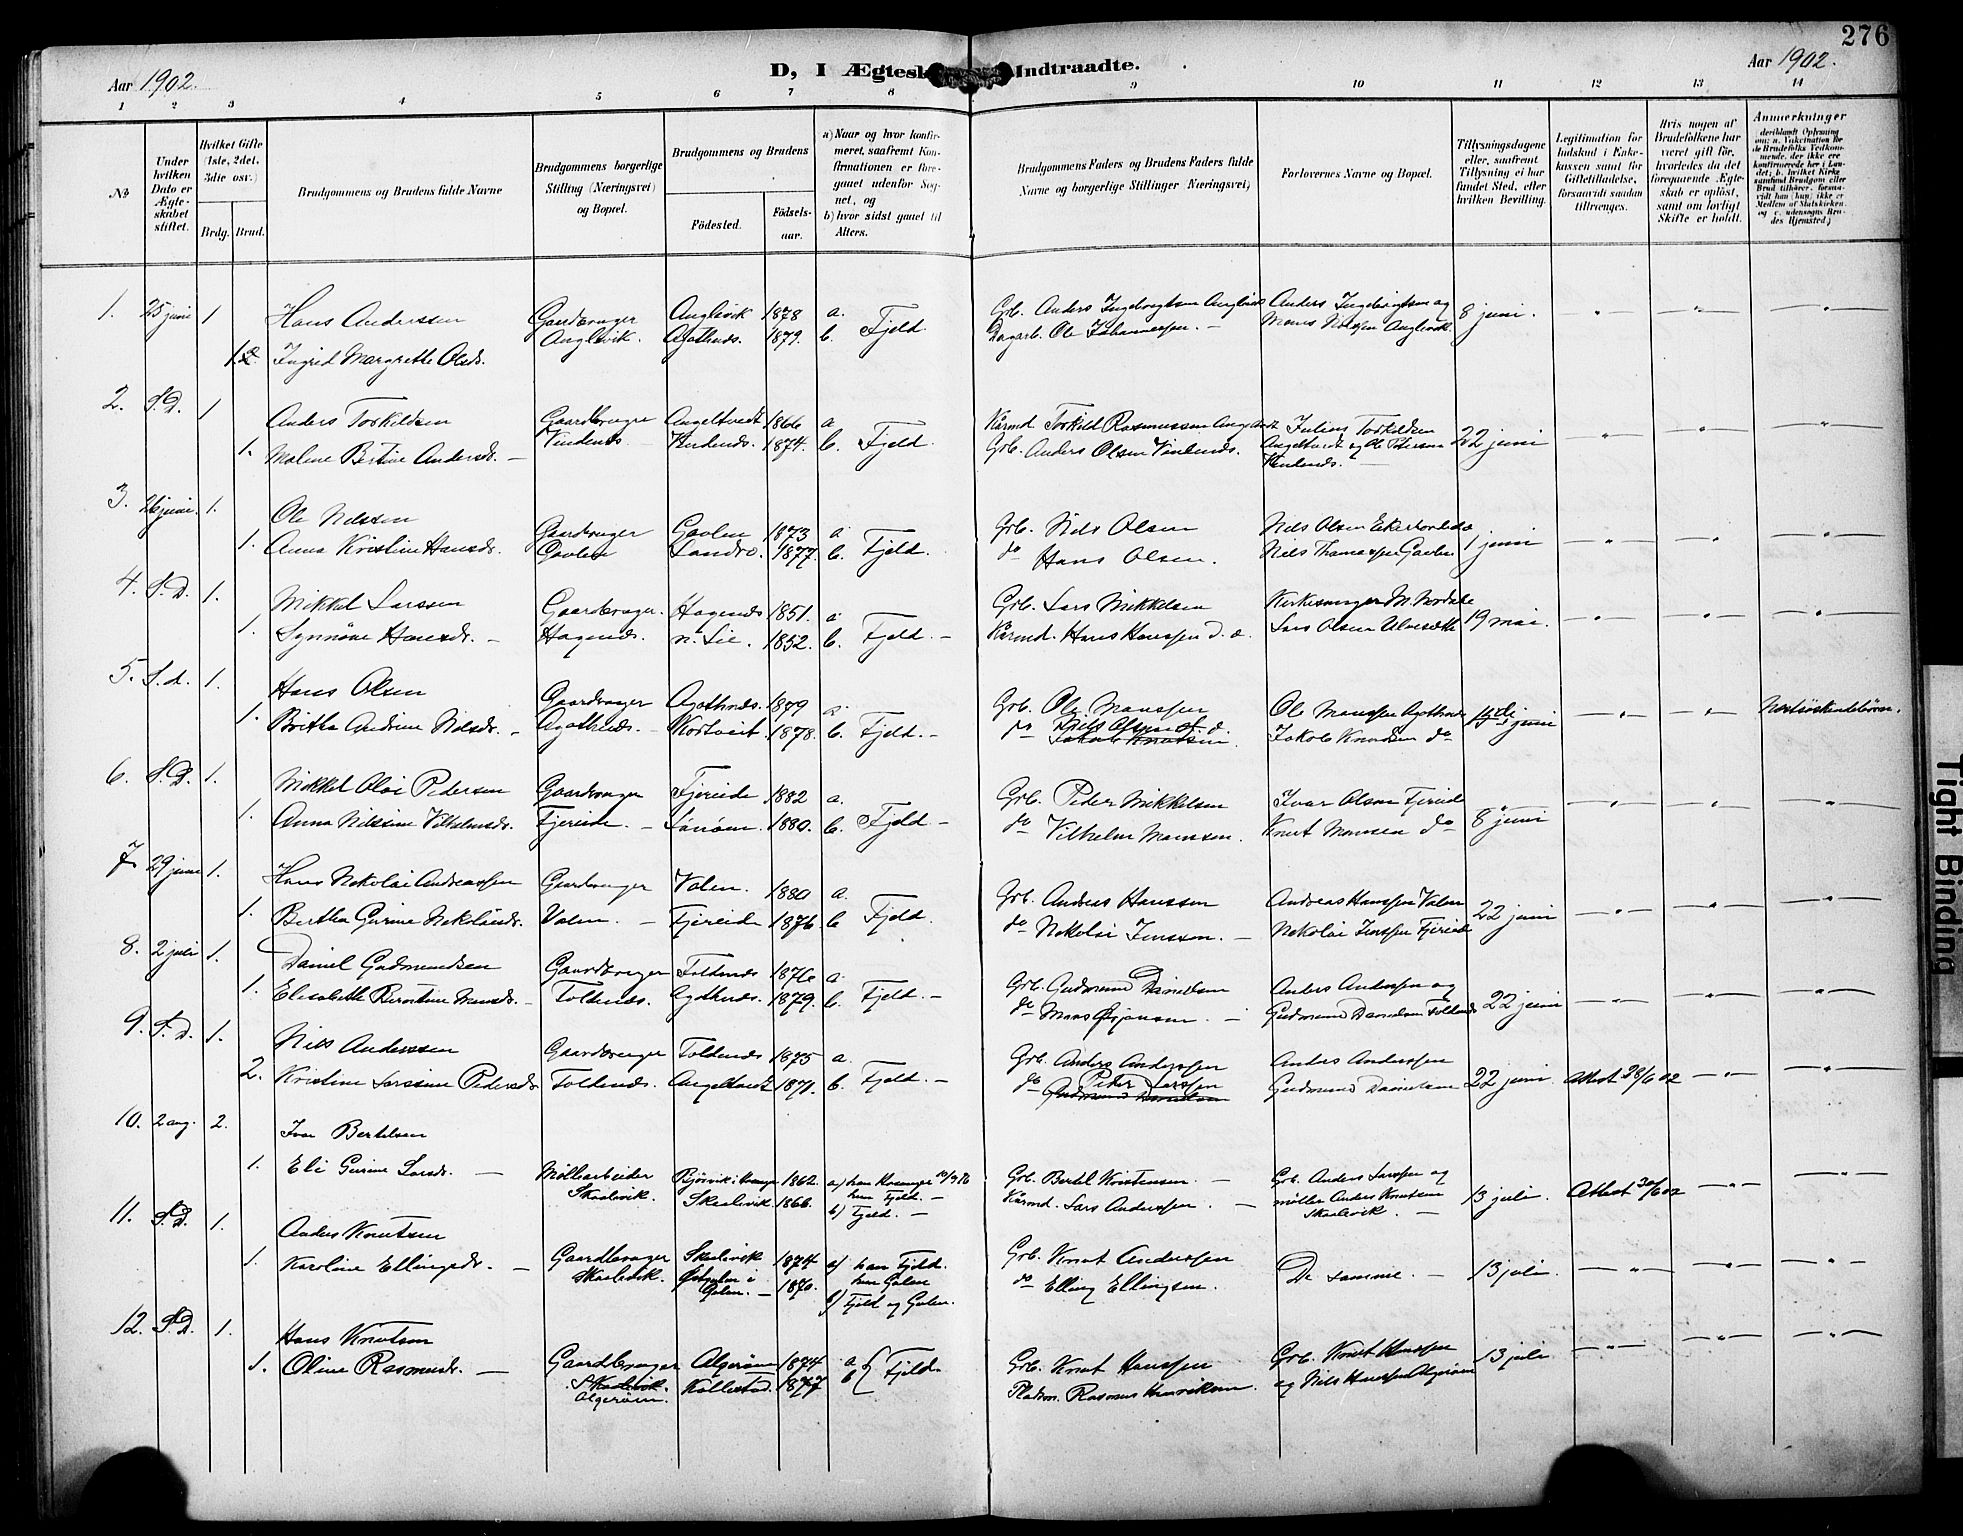 276
Aar 1902.
D, I Ægtesk Indtraadte.
Aar 1902.
1 2 3 4 5 6 7 8 9 10 11 12 13 14
No
Under hvilken Dato er Ægteskabet stiftet.
Hvilket Gifte (1ste, 2det, 3die osv.)
Brdg. Brud.
Brudgommens og Brudens fulde Navne
Brudgommens borgerlige Stilling (Næringsvei) og Bopæl.
Brudgommens og Brudens
Fødested. Fødselsaar.
a) Naar og hvor konfirmeret, saafremt Konfirmationen er foregaaet udenfor Sognet, og
b) hvor sidst gaaet til Alters.
Brudgommens Faders og Brudens Faders fulde Navne og borgerlige Stillinger (Næringsvei)
Forlovernes Navne og Bopæl.
Tillysningsdagene eller, saafremt Tillysning ei har fundet Sted, efter hvilken Bevilling.
Legitimation for Indskud i Enkekassen samt for Giftetilladelse, forsaavidt saadan tiltrænges.
Hvis nogen af Brudefolkene har været gift før, hvorledes da det foregaaende Ægteskab er opløst, samt om lovligt Skifte er holdt.
Anmerkninger
1. 25 juni 1 Hans Anderssen Gaardbruger Anglevik 1878 a. Grb. Anders Ingebrigtsen Anglevik Anders Ingebrigtsen og 8 juni.
Ingrid Margrethe Olsdr. Anglevik. Agothnes. 1879. b. Fjeld. Dagarb. Ole Johannessen. Mons Nilssen Anglevik.
2. S.D. 1 Anders Torkildsen Gaardbruger Angeltvedt 1866 a Kårmd Torkild Rasmussen Julius Torkildsen 22 juni
1. Malene Bertine Andersdr. Vindenes 1874. b. Fjeld. Grb. Anders Olsen Vindenes. Angeltvedt og Ole Petersen
Vindenes.
3. 26 juni. 1. Ole Nilssen Gaardbruger Gavlen 1873 a Grb. Nils Olsen Nils Olsen 1 juni
1. Anna Kristine Hansdr. Gavlen Landro. 1877. b. Fjeld. do Hans Olsen. Niels Thomassen Gavlen
4. S.D. 1. Mikkel Larssen Gaardbruger. Hagenes 1851. a Grb. Lars Mikkelsen Kirkesanger M. Nordale 19 mai.
1. Synnøve Hansdr. Hagenes. n. Lie. 1852. b. Fjeld. Kårmd. Hans Hanssen Lars Olsen Ulvesæth
5. S.d. 1. Hans Olsen Gaardbruger Agothnes. 1879 a. Grb. Ole Monssen Ole Monssen Agothnes juni
1. Britha Andrine Nilsdr. Agothnes. Kortveit 1878. b. Fjeld. do Nils Olsen Jakob Knudsen do Næstsøskendebørn.
6. S.D. 1. Mikkel Olai Pedersen Gaardbruger Fjereide 1882 a. Grb. Peder Mikkelsen Ivar Olsen Fjereide 8 juni
1. Anna Nilsine Vilhelmsdr. Fjereide. 1880. b. Fjeld. do Vilhelm Monssen. Knut Monsen do
7 29 juni 1. Hans Nikolai Andreassen Gaardbruger Valen. 1880 a. Grb. Andreas Hanssen Andreas Hanssen Valen 22 juni
1. Bertha Gurine Nikolaisdr. Valen. Fjereide 1876. b Fjeld. do Nikolai Jenssen. Nikolai Jenssen Fjereide
8. 2 juli 1. Daniel Gudmundsen Gaardbruger Toldnes 1876 a. Grb. Gudmund Danielsen Anders Anderssen og 22 juni
1. Elisabeth Berntine Monsdr. Toldnes. Agothnes. 1879. b. Fjeld. do Mons Ørjansen. Gudmund Danielsen Toldnes
9. S.D. 1. Nils Anderssen Gaardbruger Toldnes 1875 a. Grb. Anders Anderssen Anders Anderssen
2. Kristine Larssine Pedersdr. Toldnes. Angeltvedt 1871. b. Fjeld. do Peder Larssen Gudmund Danielsen Gudmund Danielsen 22 juni. Attest 28/6 02
10. 2 aug. 2. Ivar Bertelsen
1. Eli Gurine Larsdr. Møllearbeider 1862. a) han Hosanger Grb. Bertel Kristensen. Grb. Anders Larssen og
Skaalevik. Skaalevik 1866. hun Fjeld. b) Fjeld. Kårmd. Lars Anderssen. møller Anders Knutsen Skaalevik. 13 juli. Attest 02
11. S.D. 1. Anders Knutsen
1. Karoline Ellingsdr. Gaardbruger Skaalevik 1874 a) han Fjeld. Grb. Knut Anderssen De samme. 13 juli.
Skaalevik. i Gulen. 1870. hun Gulen b) Fjeld og Gulen. do Elling Ellingsen.
12. S.D. 1. Hans Knutsen
1. Oline Rasmusdr. Gaardbruger Algerøen 1874 a b Fjeld. Grb. Knut Hanssen Grb. Knut Hanssen 13 juli
Skaalevik. Algerøen. Kallestad. 1877 Pladsm. Rasmus Henriksen. og Nils Hanssen Algerøen
Tight Binding